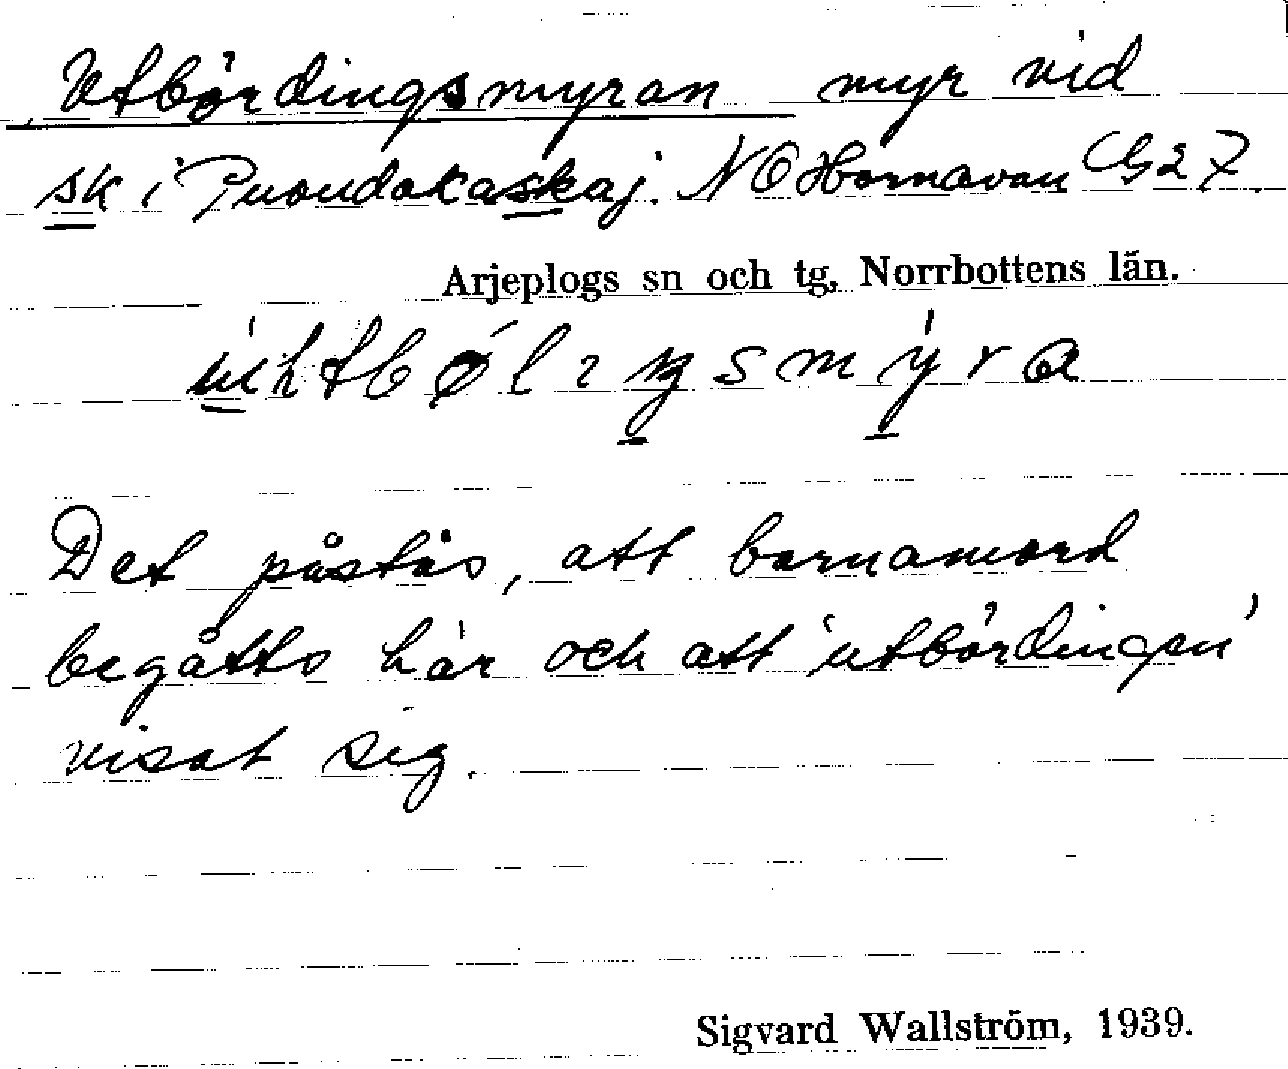 Utbördingsmyran myr vid
sk i Puoudakaskaj. NO Hornavan G27.
Arjeplogs sn och tg, Norrbottens län.
Det påstås, att barnamord
begåtts här och att 'utbördingen'
visat sig.
Sigvard Wallström, 1939.